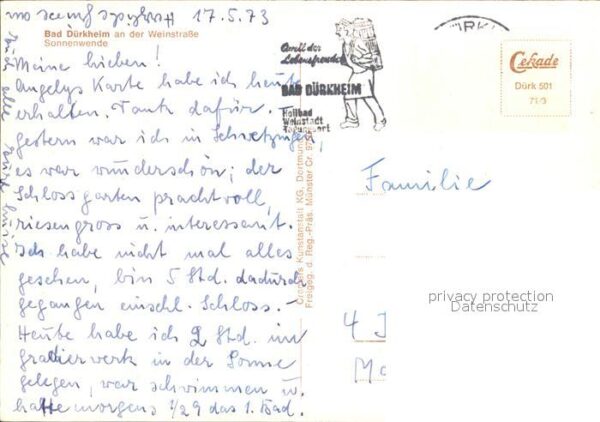 17.5.73
Bad Dürkheim an der Weinstraße
Sonnenwende
Meine Lieben!
Angelys Karte habe ich heute
erhalten. Dank dafür.
Gestern war ich in Schwetzingen,
es war wunderschön; der
Schlossgarten prachtvoll,
riesengross u. interessant.
Ich habe nicht mal alles
gesehen, bin 5 Std. dadurch
gegangen einschl. Schloss.–
Heute habe ich 2 Std. im
gradierwerk in der Sonne
gelegen, war schwimmen u.
hatte morgens 1/29 das 1. Bad.
Cramers Kunstanstalt KG, Dortmund
Freigeg. d. Reg.-Präs. Münster
Quell der
Lebensfreude
BAD DÜRKHEIM
Heilbad
Weinstadt
Tagungsort
Cekade
Dürk 501
Familie
privacy protection
Datenschutz
4